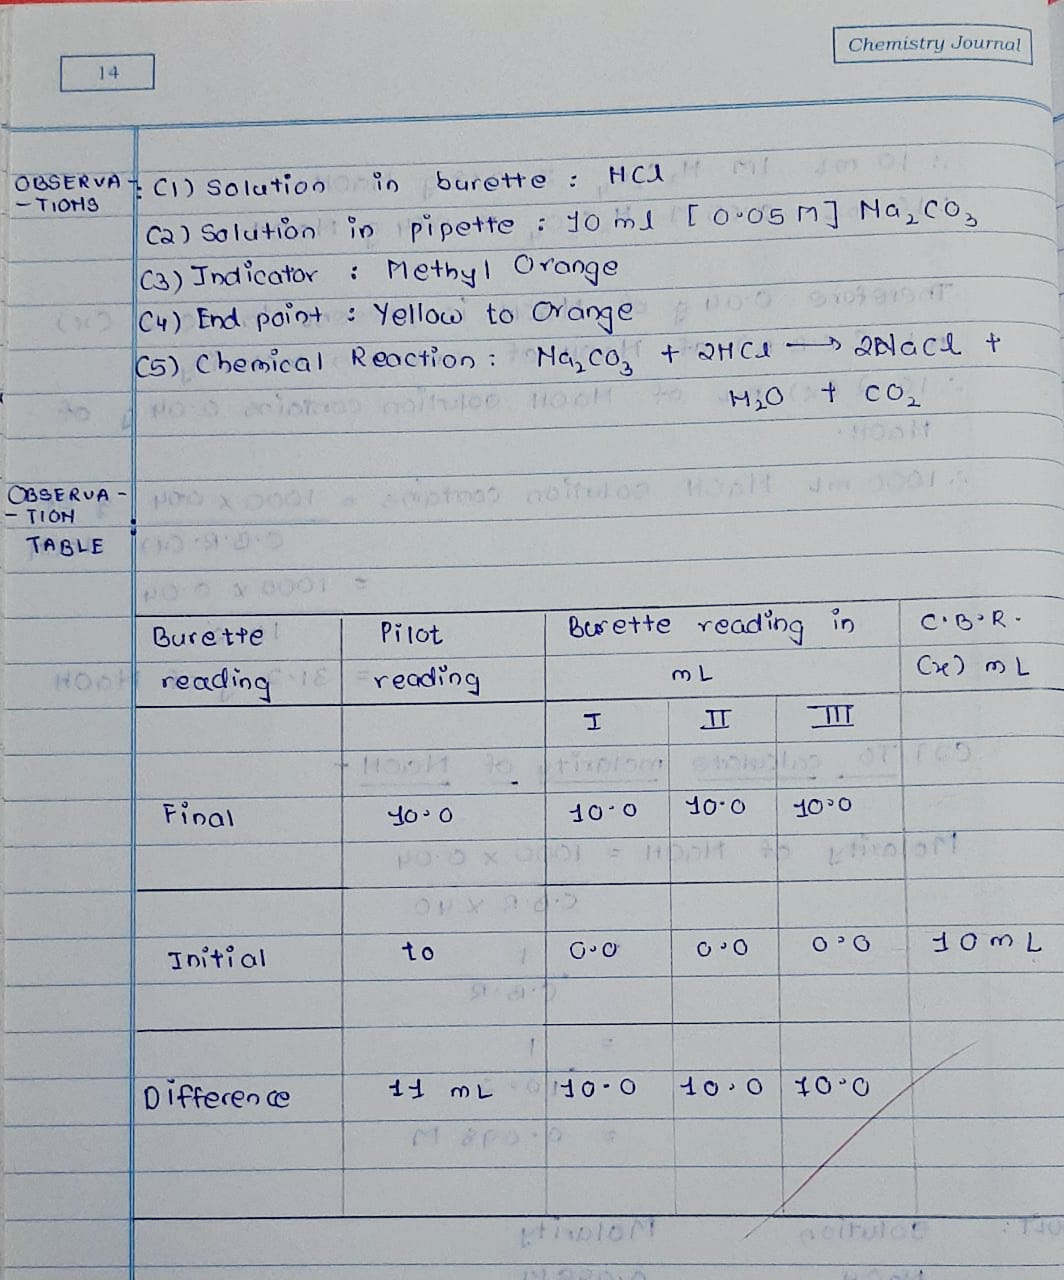 Chemistry Journal
14
OBSERVA- (1) Solution in burette : HCl
-TIONS
(2) Solution in pipette : 10 ml [0.05 M] Na₂CO₃
(3) Indicator : Methyl Orange
(4) End point : Yellow to Orange
(5) Chemical Reaction : Na₂CO₃ + 2HCl → 2NaCl +
H₂O + CO₂
OBSERVA-
-TION :
TABLE
Burette Pilot Burette reading in C.B.R.
reading reading mL (x) mL
I II III
Final 10.0 10.0 10.0 10.0
Initial to 0.0 0.0 0.0 10 mL
Difference 11 mL 10.0 10.0 10.0